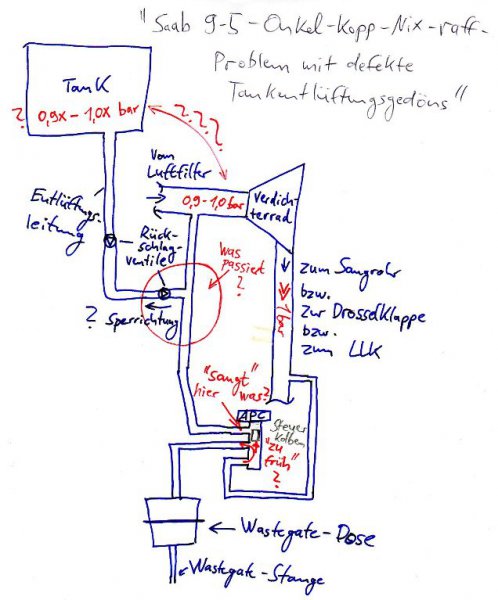 "Saab 9-5-Onkel-Kopp-Nix-raff-
Problem mit defekte
Tankentlüftungsgedöns"
Tank
? 0,9x-1,0x bar
? ? ?
vom
Luftfilter
0,9-1,0 bar
Verdich-
terrad
Entlüftungs-
leitung
Rück-
schlag-
ventile
was
passiert
?
? Sperrichtung
zum Saugrohr
bzw.
zur Drosselklappe
bzw.
zum LLK
1 bar
"saugt" was?
hier
APC
Steuer
Kolben
"zu
früh"
?
Wastegate-Dose
Wastegate-Stange